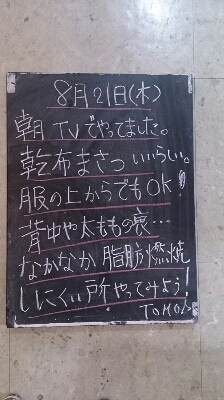 8月21日(木)
朝TVでやってました。
乾布まさついいらしい。
服の上からでもOK!
背中や太ももの裏…
なかなか脂肪燃焼
しにくい所やってみよう!
TOMOみ